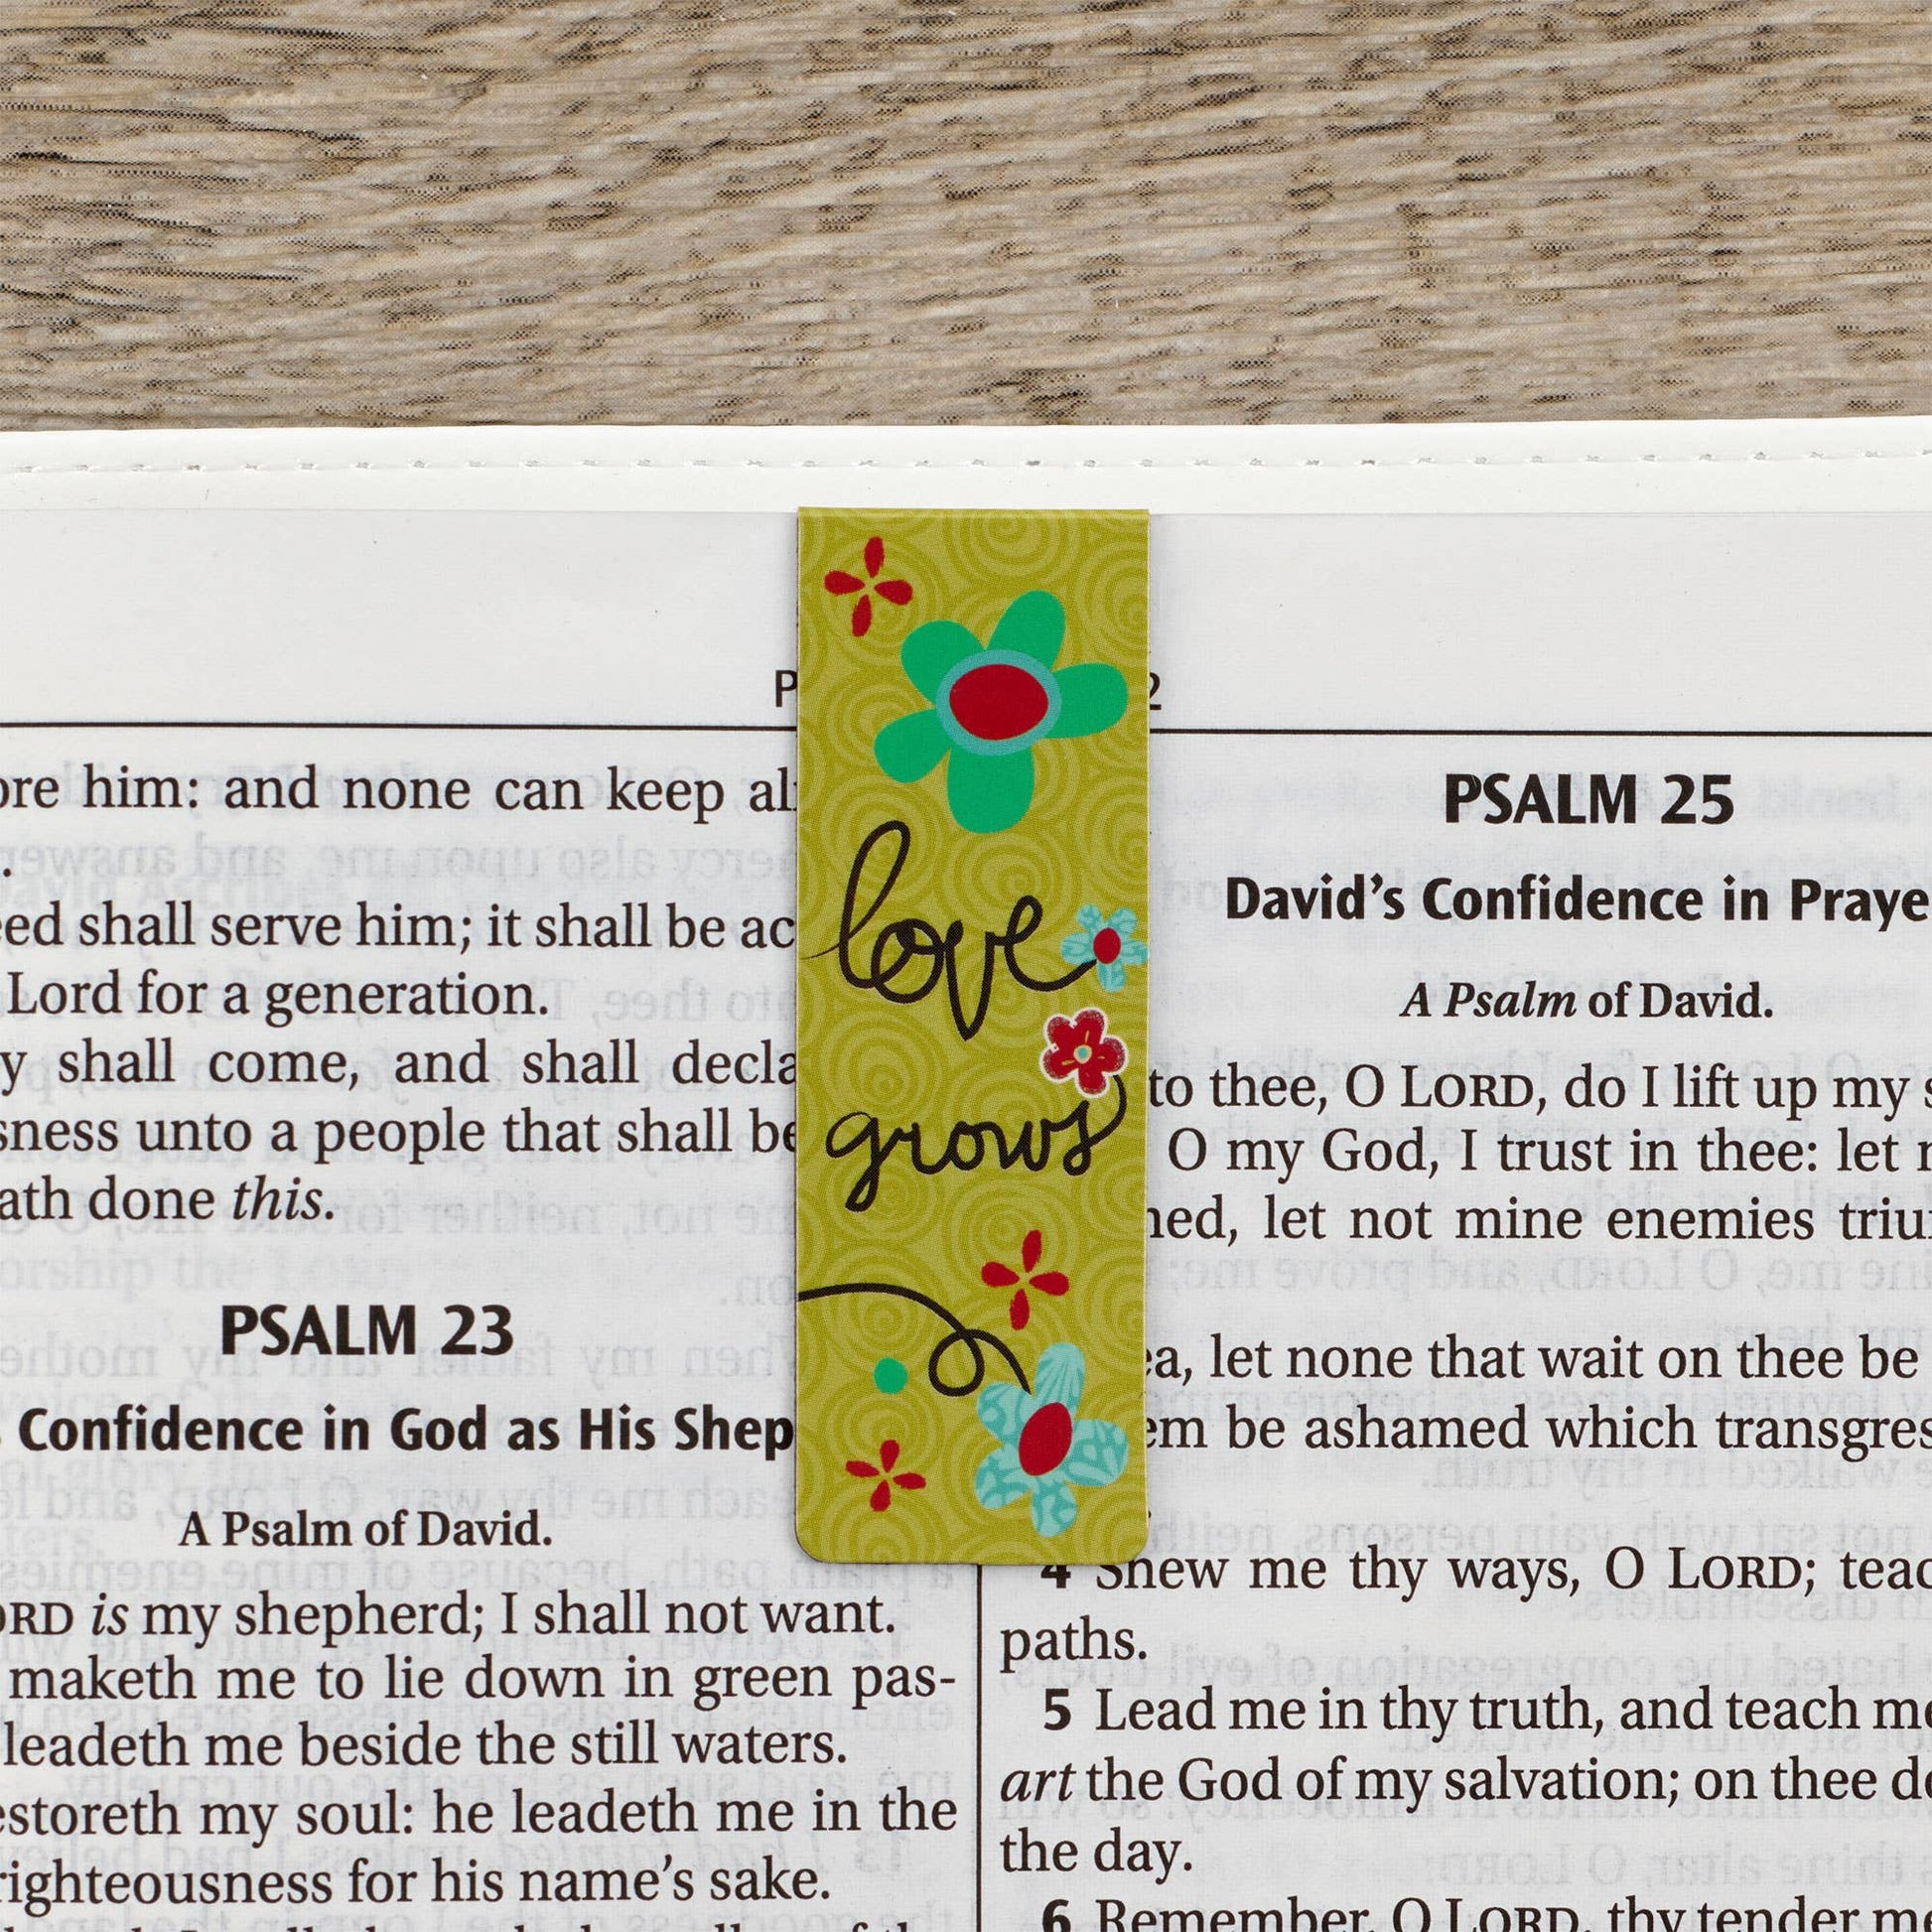 ore him: and none can keep
eed shall serve him; it shall be
Lord for a generation.
shall come, and shall
unto a people that shall
ath done this.
PSALM 23
Confidence in God as His
A Psalm of David.
ORD is my shepherd; I shall not want.
maketh me to lie down in green pas-
leadeth me beside the still waters.
estoreth my soul: he leadeth me in the
righteousness for his name’s sake.
love
grows
PSALM 25
David’s Confidence in Praye
A Psalm of David.
to thee, O LORD, do I lift up my
O my God, I trust in thee: let
let not mine enemies
let none that wait on thee be
be ashamed which transgres
4 Shew me thy ways, O LORD; teac
paths.
5 Lead me in thy truth, and teach
art the God of my salvation; on thee
the day.
6 Remember, O LORD, thy tender